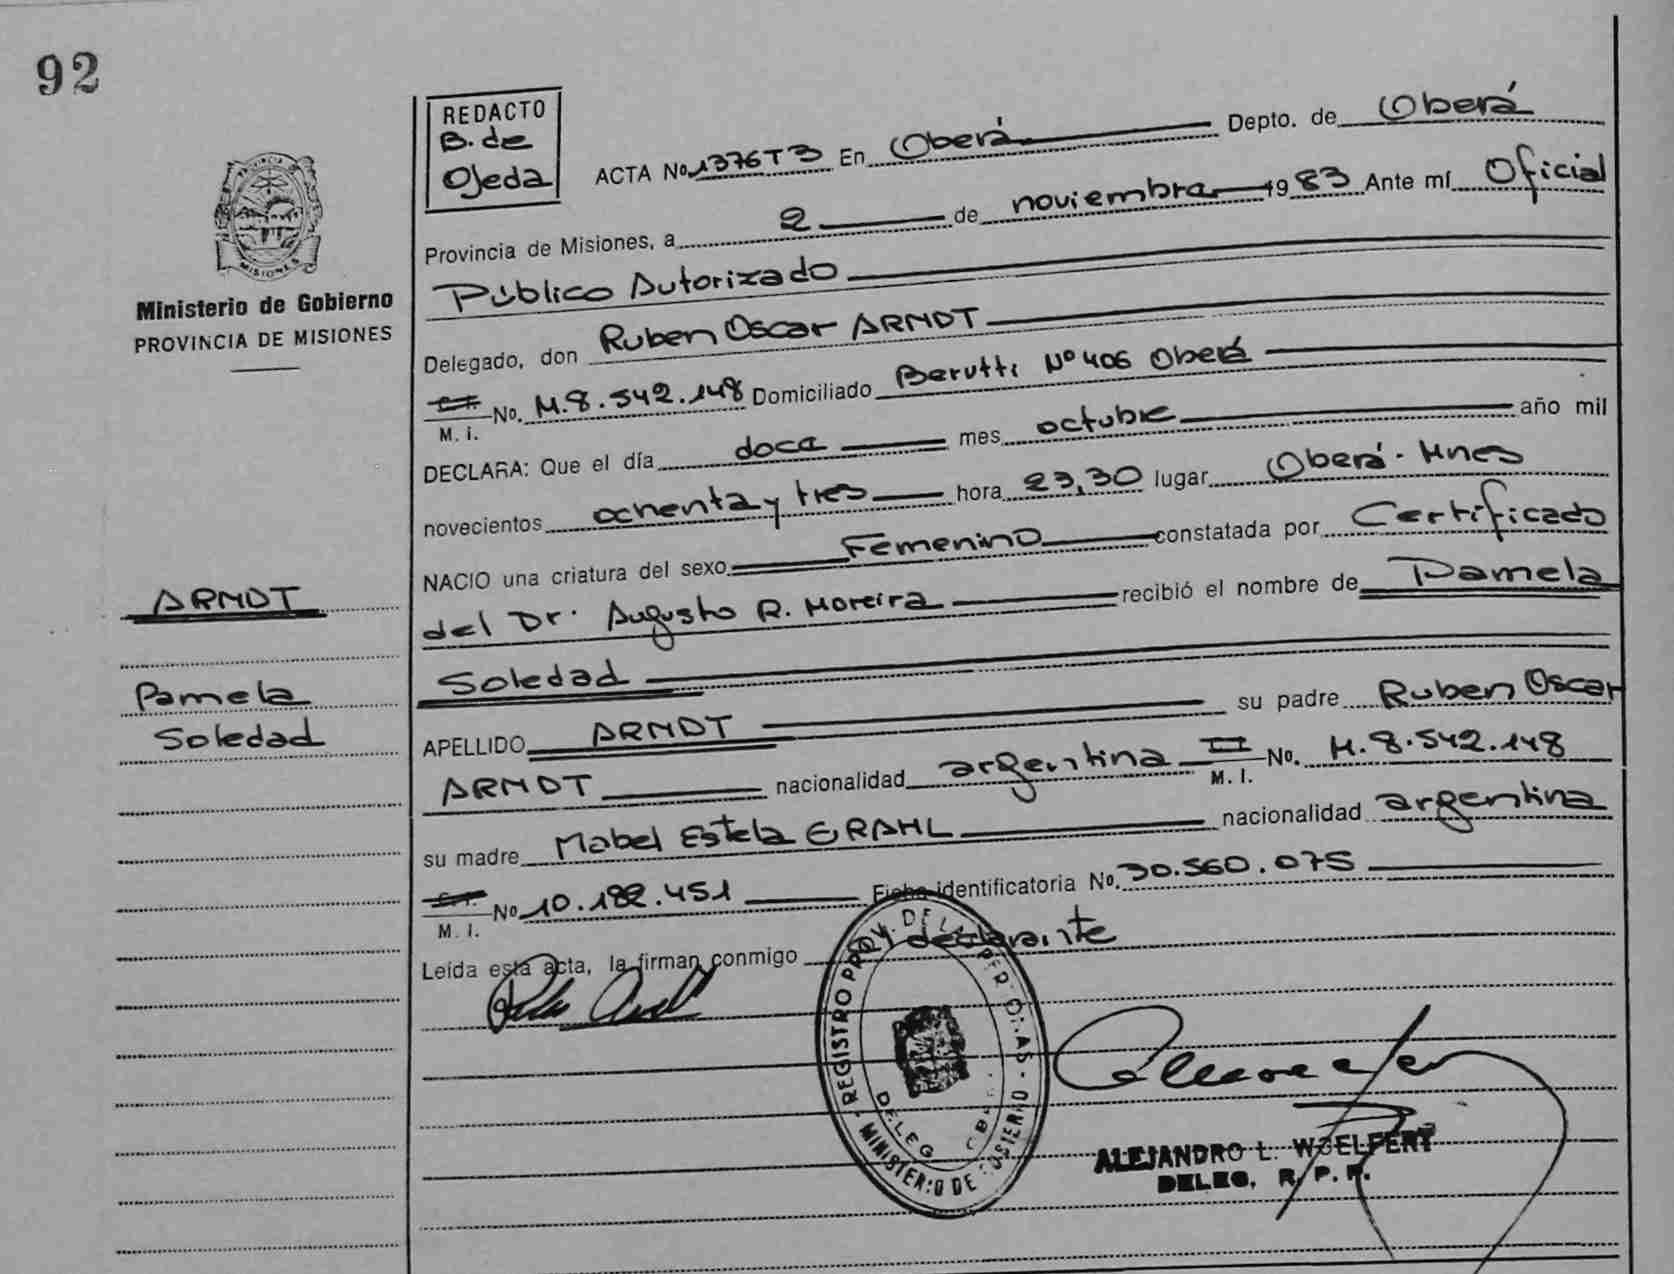 92
REDACTO
B. de
Ojeda
ACTA No. 1376T3 En Oberá Depto. de Oberá
Provincia de Misiones, a 2 de noviembre 1983 Ante mí Oficial
Público Autorizado
Delegado, don Ruben Oscar ARNDT
C.I. No. M.8.542.148 Domiciliado Berutti Nº 406 Oberá
M. I.
DECLARA: Que el día doce mes octubre año mil
novecientos ochenta y tres hora 23,30 lugar Oberá - Mnes
NACIO una criatura del sexo Femenino constatada por Certificado
del Dr. Augusto R. Moreira recibió el nombre de Pamela
Soledad
APELLIDO ARNDT su padre Ruben Oscar
ARNDT nacionalidad argentina No. M.8.542.148
M. I.
su madre Mabel Estela GRAHL nacionalidad argentina
No. 10.182.451 Ficha identificatoria No. 30.560.075
M. I.
Leída esta acta, la firman conmigo declarante
MISIONES
Ministerio de Gobierno
PROVINCIA DE MISIONES
ARNDT
Pamela
Soledad
REGISTRO PROV. DE LAS PERSONAS
MINISTERIO DE GOBIERNO
DELEG
ALEJANDRO L. WOELFERT
DELEG. R. P. P.